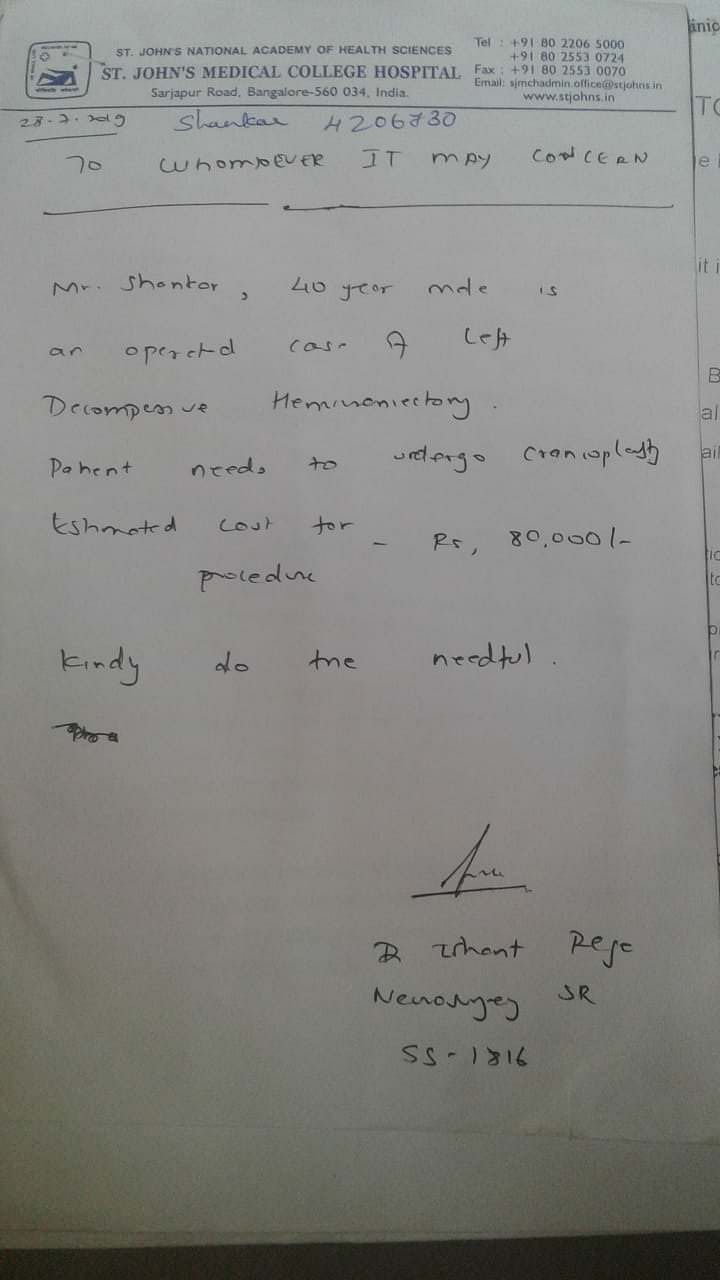 ST. JOHN'S NATIONAL ACADEMY OF HEALTH SCIENCES
ST. JOHN'S MEDICAL COLLEGE HOSPITAL
Sarjapur Road, Bangalore-560 034, India.
Tel : +91 80 2206 5000
+91 80 2553 0724
Fax : +91 80 2553 0070
Email: sjmchadmin.office@stjohns.in
www.stjohns.in
28.7.2019 Shankar 4206730
TO WHOMSOEVER IT MAY CONCERN
Mr. Shankar, 40 year male is
an operated case of Left
Decompessive
Patient needs to undergo cranioplasty
Estimated cost for - Rs, 80,000/-
procedure
Kindy do the needful.
Dr Ishant
Neurosurgey SR
SS-1816